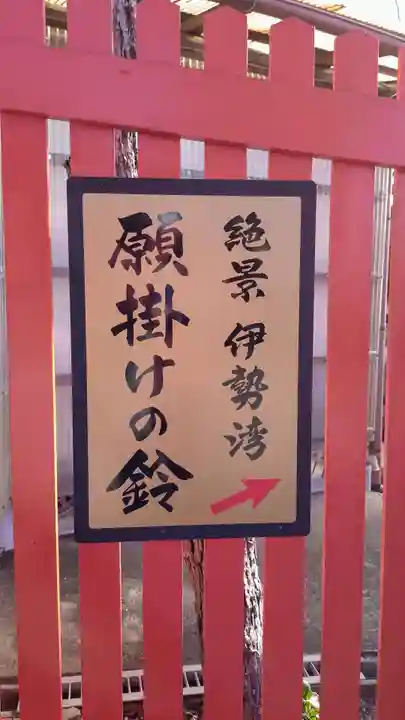 絶景 伊勢湾
願掛けの鈴